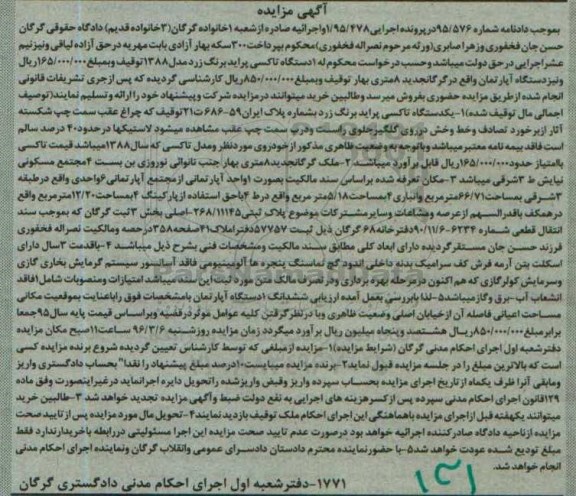 آگهی مزایده
بموجب دادنامه شماره ۹۵/۵۷۶ درپرونده اجرایی ۱/۹۵/۴۷۸ واجرائیه صادره ازشعبه ۱خانواده گرگان(۳خانواده قدیم) دادگاه حقوقی گرگان
حسن جان فخفوری وزهرا صابری(ورثه مرحوم نصراله فخفوری)محکوم بپرداخت ۳۰۰سکه بهار آزادی بابت مهریه درحق آزاده لیاقی ونیزنیم
عشراجرایی درحق دولت میباشد وحسب درخواست محکوم له ۱دستگاه تاکسی پراید برنگ زرد مدل۱۳۸۸توقیف وبمبلغ۱۶۵/۰۰۰/۰۰۰ریال
ونیزدستگاه آپارتمان واقع درگرگانجدید ۸متری بهار توقیف وبمبلغ۸۵۰/۰۰۰/۰۰۰ریال کارشناسی گردیده که پس ازجری تشریفات قانونی
انجام شده ازطریق مزایده حضوری بفروش میرسد وطالبین خرید میتوانند درمزایده شرکت وپیشنهاد خود را ارائه وتسلیم نمایند(توصیف
اجمالی مال توقیف شده)۱-یکدستگاه تاکسی پراید برنگ زرد بشماره پلاک ایران۵۹-۶۸۶ت۲۱توقیف که چراغ عقب سمت چپ شکسته
آثار ازبرخورد تصادف وخط وخش درروی گلگیرجلوی راست ودرب سمت چپ عقب مشاهده میشود لاستیکها درحدود۴۰ درصد سالم
است فاقد بیمه نامه معتبرمیباشد وباتوجه به وضعیت ظاهری مذکور ازخودروی موردنظر ومدل تاکسی که سال۱۳۸۸میباشد قیمت تاکسی
باامتیاز حدود۱۶۵/۰۰۰/۰۰۰ریال قابل برآورد میباشد ۲-ملک گرگانجدید۸متری بهار جنب نانوائی نوروزی بن بست ۴مجتمع مسکونی
نیایش ط ۳شرقی میباشد ۳-مکان تعرفه شده براساس سند مالکیت بصورت ۱واحد آپارتمانی ازمجتمع آپارتمانی۶واحدی واقع درطبقه
۳شرقی بمساحت۶۶/۷۱مترمربع وانباری ۴بمساحت۵/۱۸متر مربع واقع در ط ۴باحق استفاده ازپارکینگ ۴بمساحت۱۲/۳۰مترمربع واقع
درهمکف باقدرالسهم ازعرصه ومشاعات وسایرمشترکات موضوع پلاک ثبتی۲۶۸/۱۱۱۴۵-اصلی بخش ۳ثبت گرگان که بموجب سند
انتقال قطعی شماره ۶۲۳۴-۹۰/۱۱/۶دفترخانه۶۸ گرگان ذیل ثبت ۵۷۷۵۷دفتراملاک۴۱صفحه۳۵۸درحصه ومالکیت نصراله فخفوری
فرزند حسن جان مستقرگردیده دارای ابعاد کلی مطابق سند مالکیت ومشخصات فنی بشرح ذیل میباشد ۴-باقدمت ۳سال دارای
اسکلت بتن آرمه فرش کف سرامیک بدنه داخلی اندود گچ نماسنگ پنجره ها آلومینیومی فاقد آسانسور سیستم گرمایش بخاری گازی
وسرمایش کولرگازی که هم اکنون درمرحله بهره برداری ودرتصرف مالک متن مورد ثبت این سند میباشد امتیازات ومنصوبات شامل۱فاقد
انشعاب آب-برق وگازمیباشد۵-لذا بابررسی بعمل آمده ارزیابی ششدانگ ۱دستگاه آپارتمان بامشخصات فوق راباعنایت بموقعیت مکانی
مساحت اعیانی فاصله آن ازخیابان اصلی وضعیت ظاهری وبا درنظرگرفتن کلیه عوامل موثردرقضیه وبراساس قیمت پایه سال۹۵جمعا
برابرمبلغ۸۵۰/۰۰۰/۰۰۰ریال هشتصد وپنجاه میلیون ریال برآورد میگردد زمان مزایده روزشنبه ۹۶/۳/۶ ساعت۱۱صبح مکان مزایده
دفترشعبه اول اجرای احکام مدنی گرگان (شرایط مزایده)۱-مزایده ازمبلغی که توسط کارشناس تعیین گردیده شروع برنده مزایده کسی
است که بالاترین مبلغ را در جلسه مزایده قبول نماید۲-برنده مزایده میبایست۱۰درصد مبلغ پیشنهاد را نقدا" بحساب دادگستری واریز
ومابقی آنرا ظرف یکماه ازتاریخ اجرای مزایده بحساب سپرده واریز وقبض واریزشده راتحویل دایره اجرانماید درغیراینصورت وفق ماده
۱۲۹قانون اجرای احکام مدنی سپرده پس ازکسرهزینه های اجرایی به نفع دولت ضبط وآگهی مزایده تجدید خواهد شد ۳-طالبین خرید
میتوانند یکهفته قبل ازاجرای مزایده باهماهنگی این اجرای احکام ملک توقیف بازدید نمایند۴-تحویل مال مورد مزایده پس از تایید صحت
مزایده ازناحیه دادگاه صادرکننده اجرائیه خواهد بود درصورت عدم تایید صحت مزایده این اجرا مسئولیتی دررابطه باخریدارندارد فقط
مبلغ تودیع شده عودت خواهد شد۵-با حضورنماینده محترم دادستان دادسرای عمومی وانقلاب گرگان ونماینده اجرای احکام مدنی
انجام خواهد شد.
۱۷۷۱-دفترشعبه اول اجرای احکام مدنی دادگستری گرگان